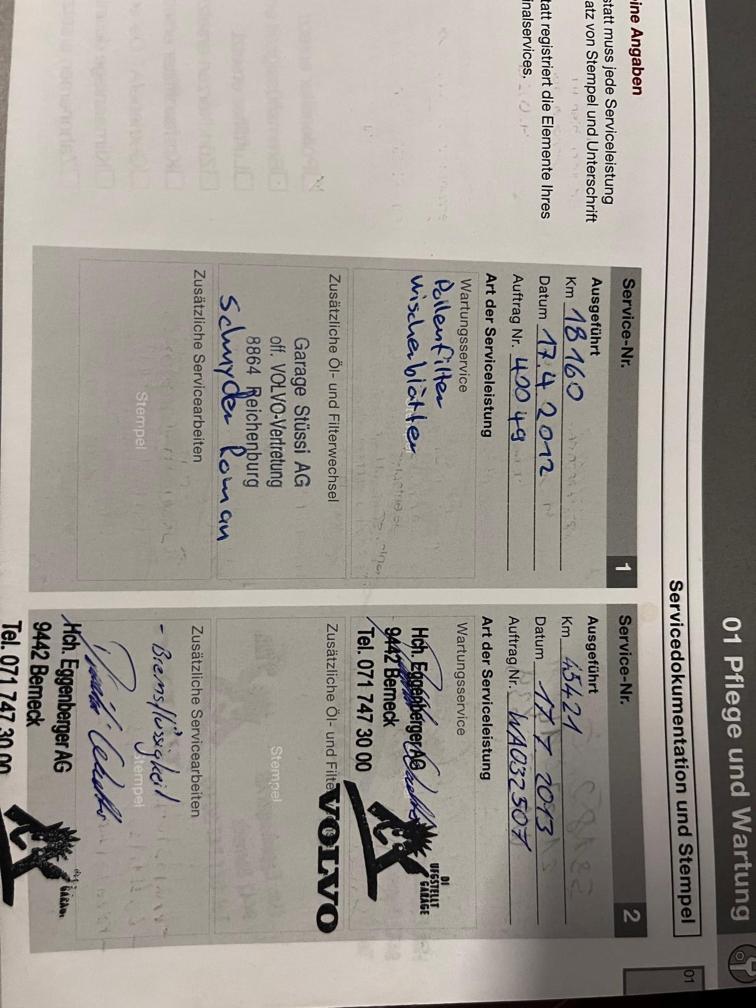 01 Pflege und Wartung
Servicedokumentation und Stempel
01
ine Angaben
statt muss jede Serviceleistung
atz von Stempel und Unterschrift
tatt registriert die Elemente Ihres
inalservices.
Service-Nr. 1
Ausgeführt
Km 18160
Datum 17.4 2012
Auftrag Nr. 40049
Art der Serviceleistung
Wartungsservice
Pollenfilter
Wischerblätter
Zusätzliche Öl- und Filterwechsel
Garage Stüssi AG
off. VOLVO-Vertretung
8864 Reichenburg
Schnyder Roman
Zusätzliche Servicearbeiten
Stempel
Service-Nr. 2
Ausgeführt
Km 45421
Datum 17 7 2013
Auftrag Nr. WA032507
Art der Serviceleistung
Wartungsservice
Hch. Eggenberger AG
9442 Berneck
Tel. 071 747 30 00
DI
UFGSTELLT
GARAGE
Zusätzliche Öl- und Filte
VOLVO
Stempel
Zusätzliche Servicearbeiten
- Bremsflüssigkeit
Stempel
Hch. Eggenberger AG
9442 Berneck
Tel. 071 747 30 00
GARAGE